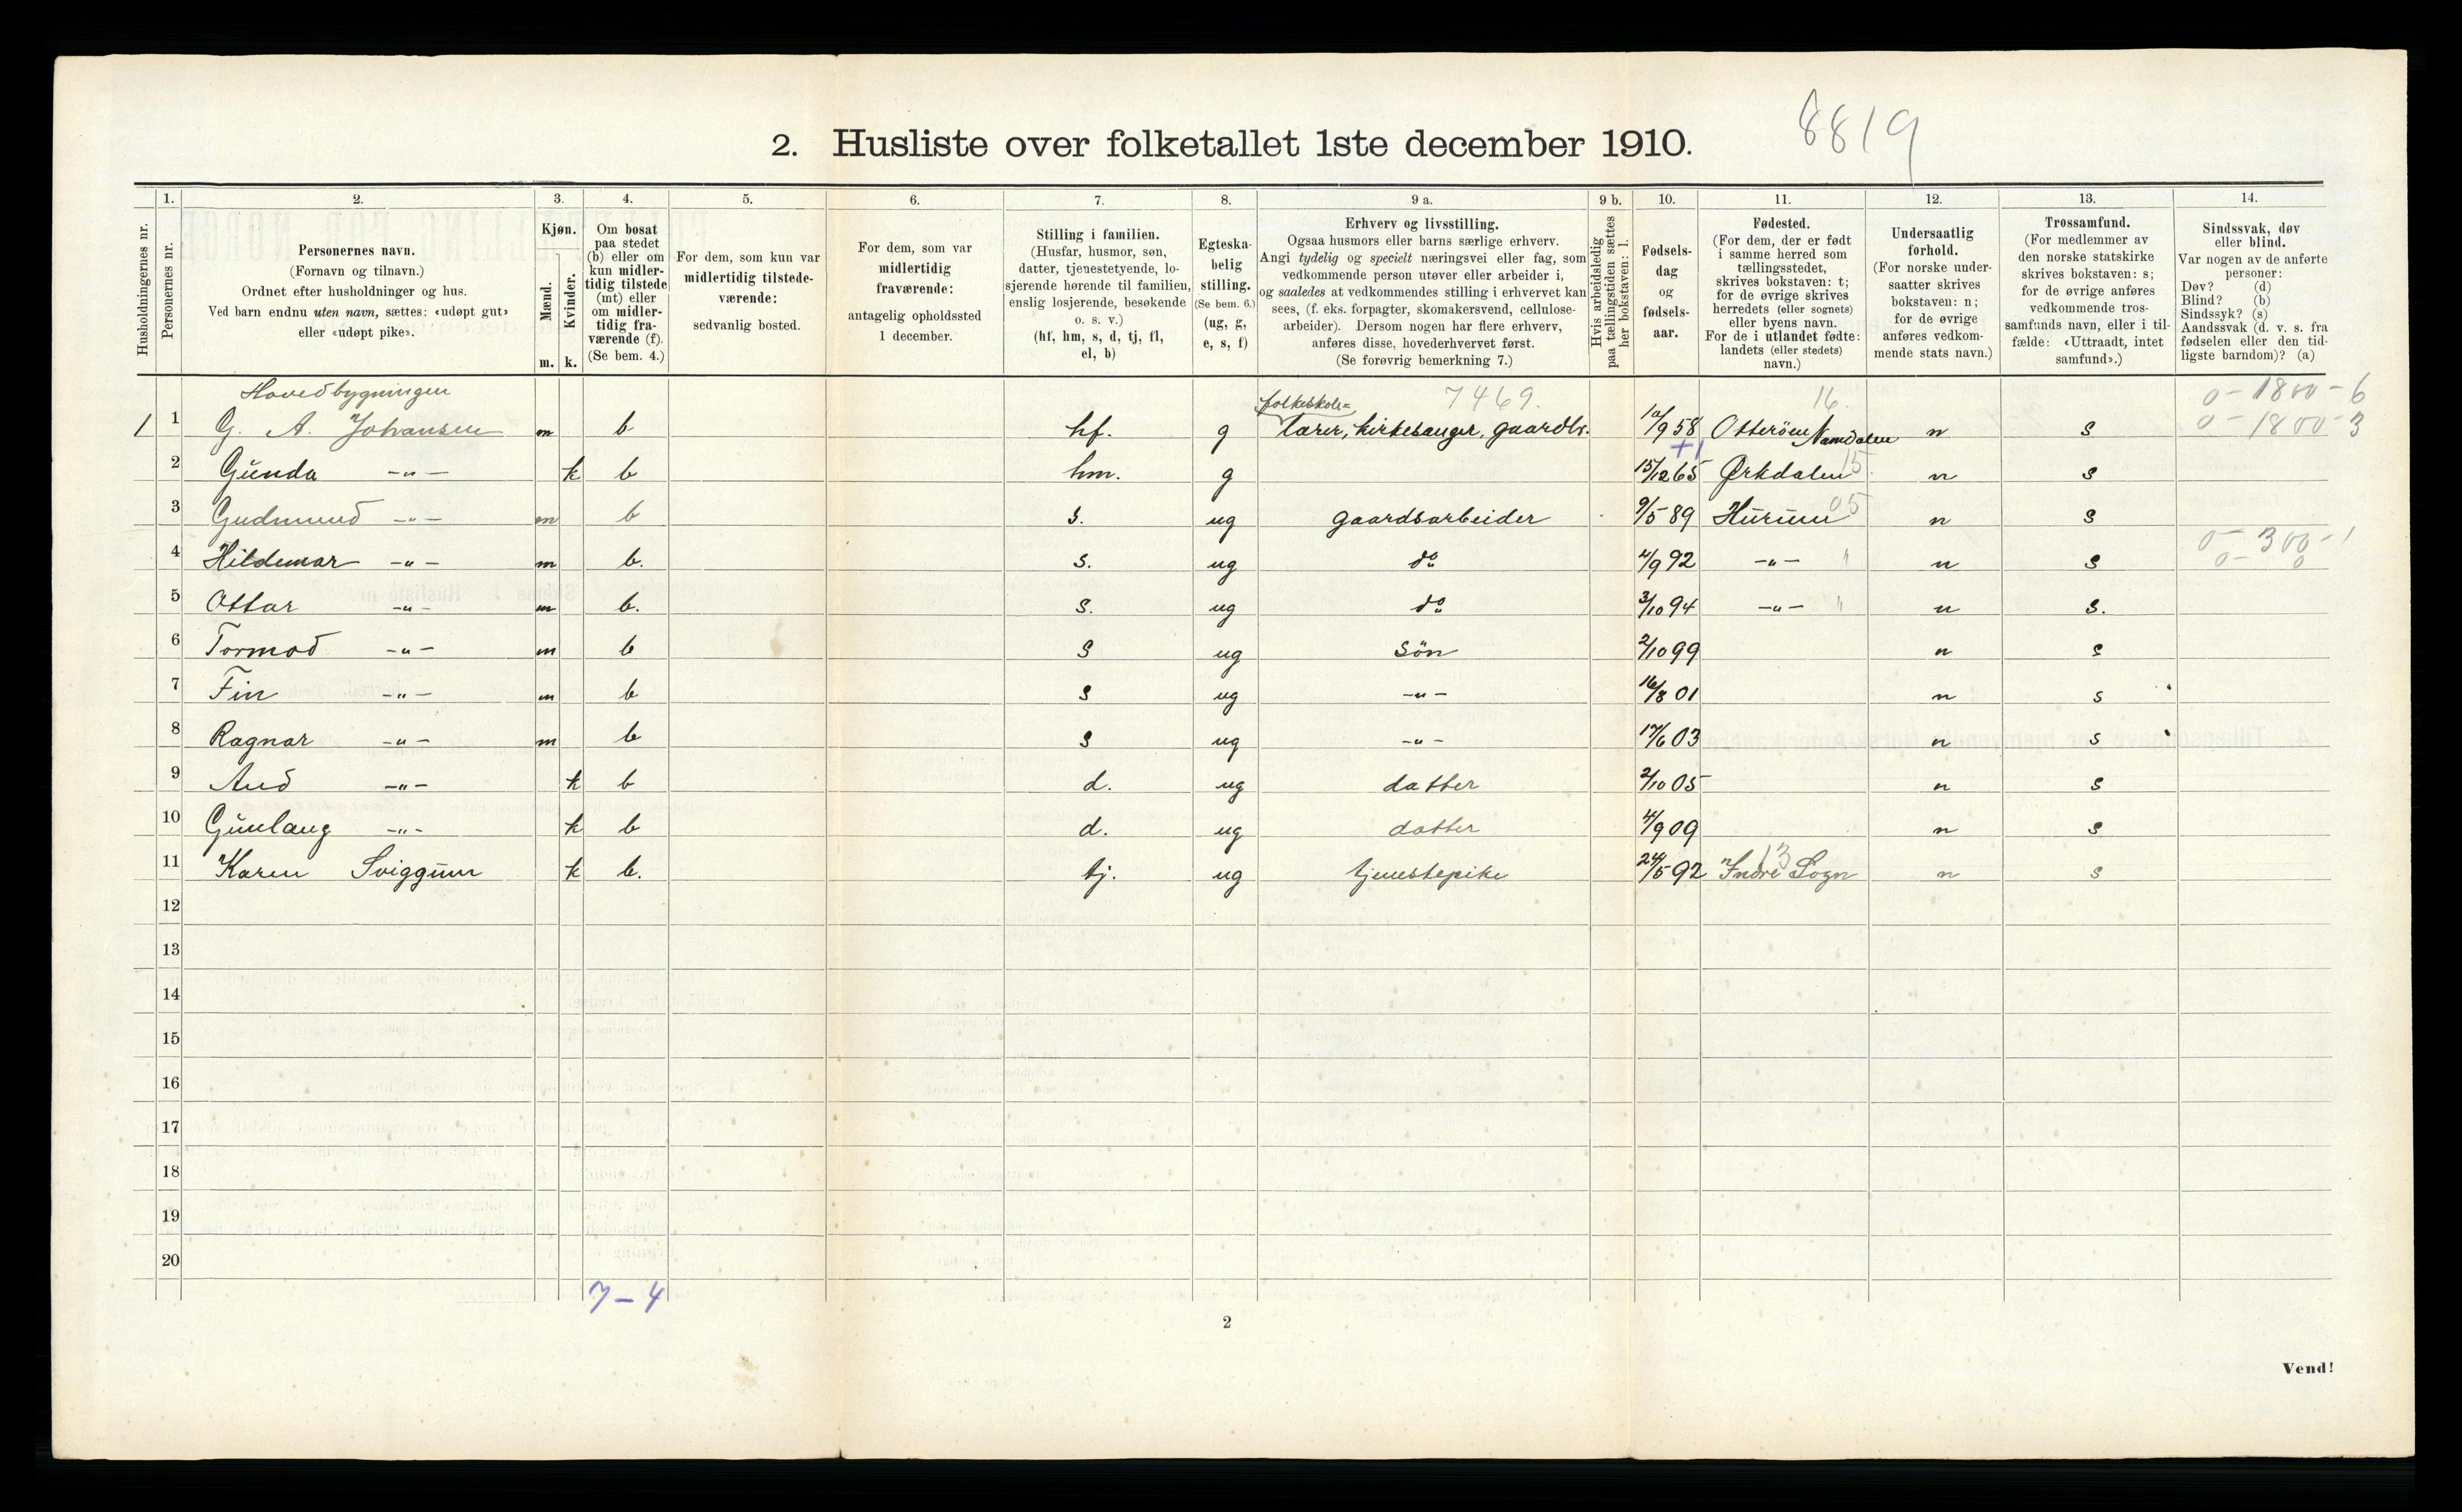 2. Husliste over folketallet 1ste december 1910.
8819
Husholdningernes nr.
1. Personernes nr.
2. Personernes navn.
(Fornavn og tilnavn.)
Ordnet efter husholdninger og hus.
Ved barn endnu uten navn, sættes: «udøpt gut»
eller «udøpt pike».
3. Kjøn.
Mænd. Kvinder.
m. k.
4. Om bosat
paa stedet
(b) eller om
kun midler-
tidig tilstede
(mt) eller
om midler-
tidig fra-
værende (f).
(Se bem. 4.)
5. For dem, som kun var
midlertidig tilstede-
værende:
sedvanlig bosted.
6. For dem, som var
midlertidig
fraværende:
antagelig opholdssted
1 december.
7. Stilling i familien.
(Husfar, husmor, søn,
datter, tjenestetyende, lo-
sjerende hørende til familien,
enslig losjerende, besøkende
o. s. v.)
(hf, hm, s, d, tj, fl,
el, b)
8. Egteska-
belig
stilling.
(Se bem. 6.)
(ug, g,
e, s, f)
9 a. Erhverv og livsstilling.
Ogsaa husmors eller barns særlige erhverv.
Angi tydelig og specielt næringsvei eller fag, som
vedkommende person utøver eller arbeider i,
og saaledes at vedkommendes stilling i erhvervet kan
sees, (f. eks. forpagter, skomakersvend, cellulose-
arbeider). Dersom nogen har flere erhverv,
anføres disse, hovederhvervet først.
(Se forøvrig bemerkning 7.)
9 b. Hvis arbeidsledig
paa tællingstiden sættes
her bokstaven: l.
10. Fødsels-
dag
og
fødsels-
aar.
11. Fødested.
(For dem, der er født
i samme herred som
tællingsstedet,
skrives bokstaven: t;
for de øvrige skrives
herredets (eller sognets)
eller byens navn.
For de i utlandet fødte:
landets (eller stedets)
navn.)
12. Undersaatlig
forhold.
(For norske under-
saatter skrives
bokstaven: n;
for de øvrige
anføres vedkom-
mende stats navn.)
13. Trossamfund.
(For medlemmer av
den norske statskirke
skrives bokstaven: s;
for de øvrige anføres
vedkommende tros-
samfunds navn, eller i til-
fælde: «Uttraadt, intet
samfund».)
14. Sindssvak, døv
eller blind.
Var nogen av de anførte
personer:
Døv? (d)
Blind? (b)
Sindssyk? (s)
Aandssvak (d. v. s. fra
fødselen eller den tid-
ligste barndom)? (a)
Hovedbygningen folkeskole= 7469. 16. 0-1800-6
1 1 G. A. Johansen m b hf. g lærer, kirkesanger, gaardbr. 10/9 58 Otterøen Namdalen n s 0-1800-3
+1
2 Gunda -"- k b hm. g 15/12 65 Ørkdalen 15. n s
3 Gudmund -"- m b s. ug gaardsarbeider 9/5 89 Hurum 05 n s
0-300-1
4 Hildemar -"- m b. s. ug do 4/9 92 -"- " n s 0- 0
5 Ottar -"- m b. s. ug do 3/10 94 -"- " n s.
6 Tormod -"- m b s ug søn 2/10 99 n s
7 Fin -"- m b s ug -"- 16/8 01 n s
8 Ragnar -"- m b s ug -"- 17/6 03 n s
9 Aud -"- k b d. ug datter 2/10 05 n s
10 Gunlaug -"- k b d. ug datter 4/9 09 n s
11 Karen Sviggum k b. tj. ug tjenestepike 24/5 92 Indre Sogn 13 n s
12
13
14
15
16
17
18
19
20
7-4
2
Vend!